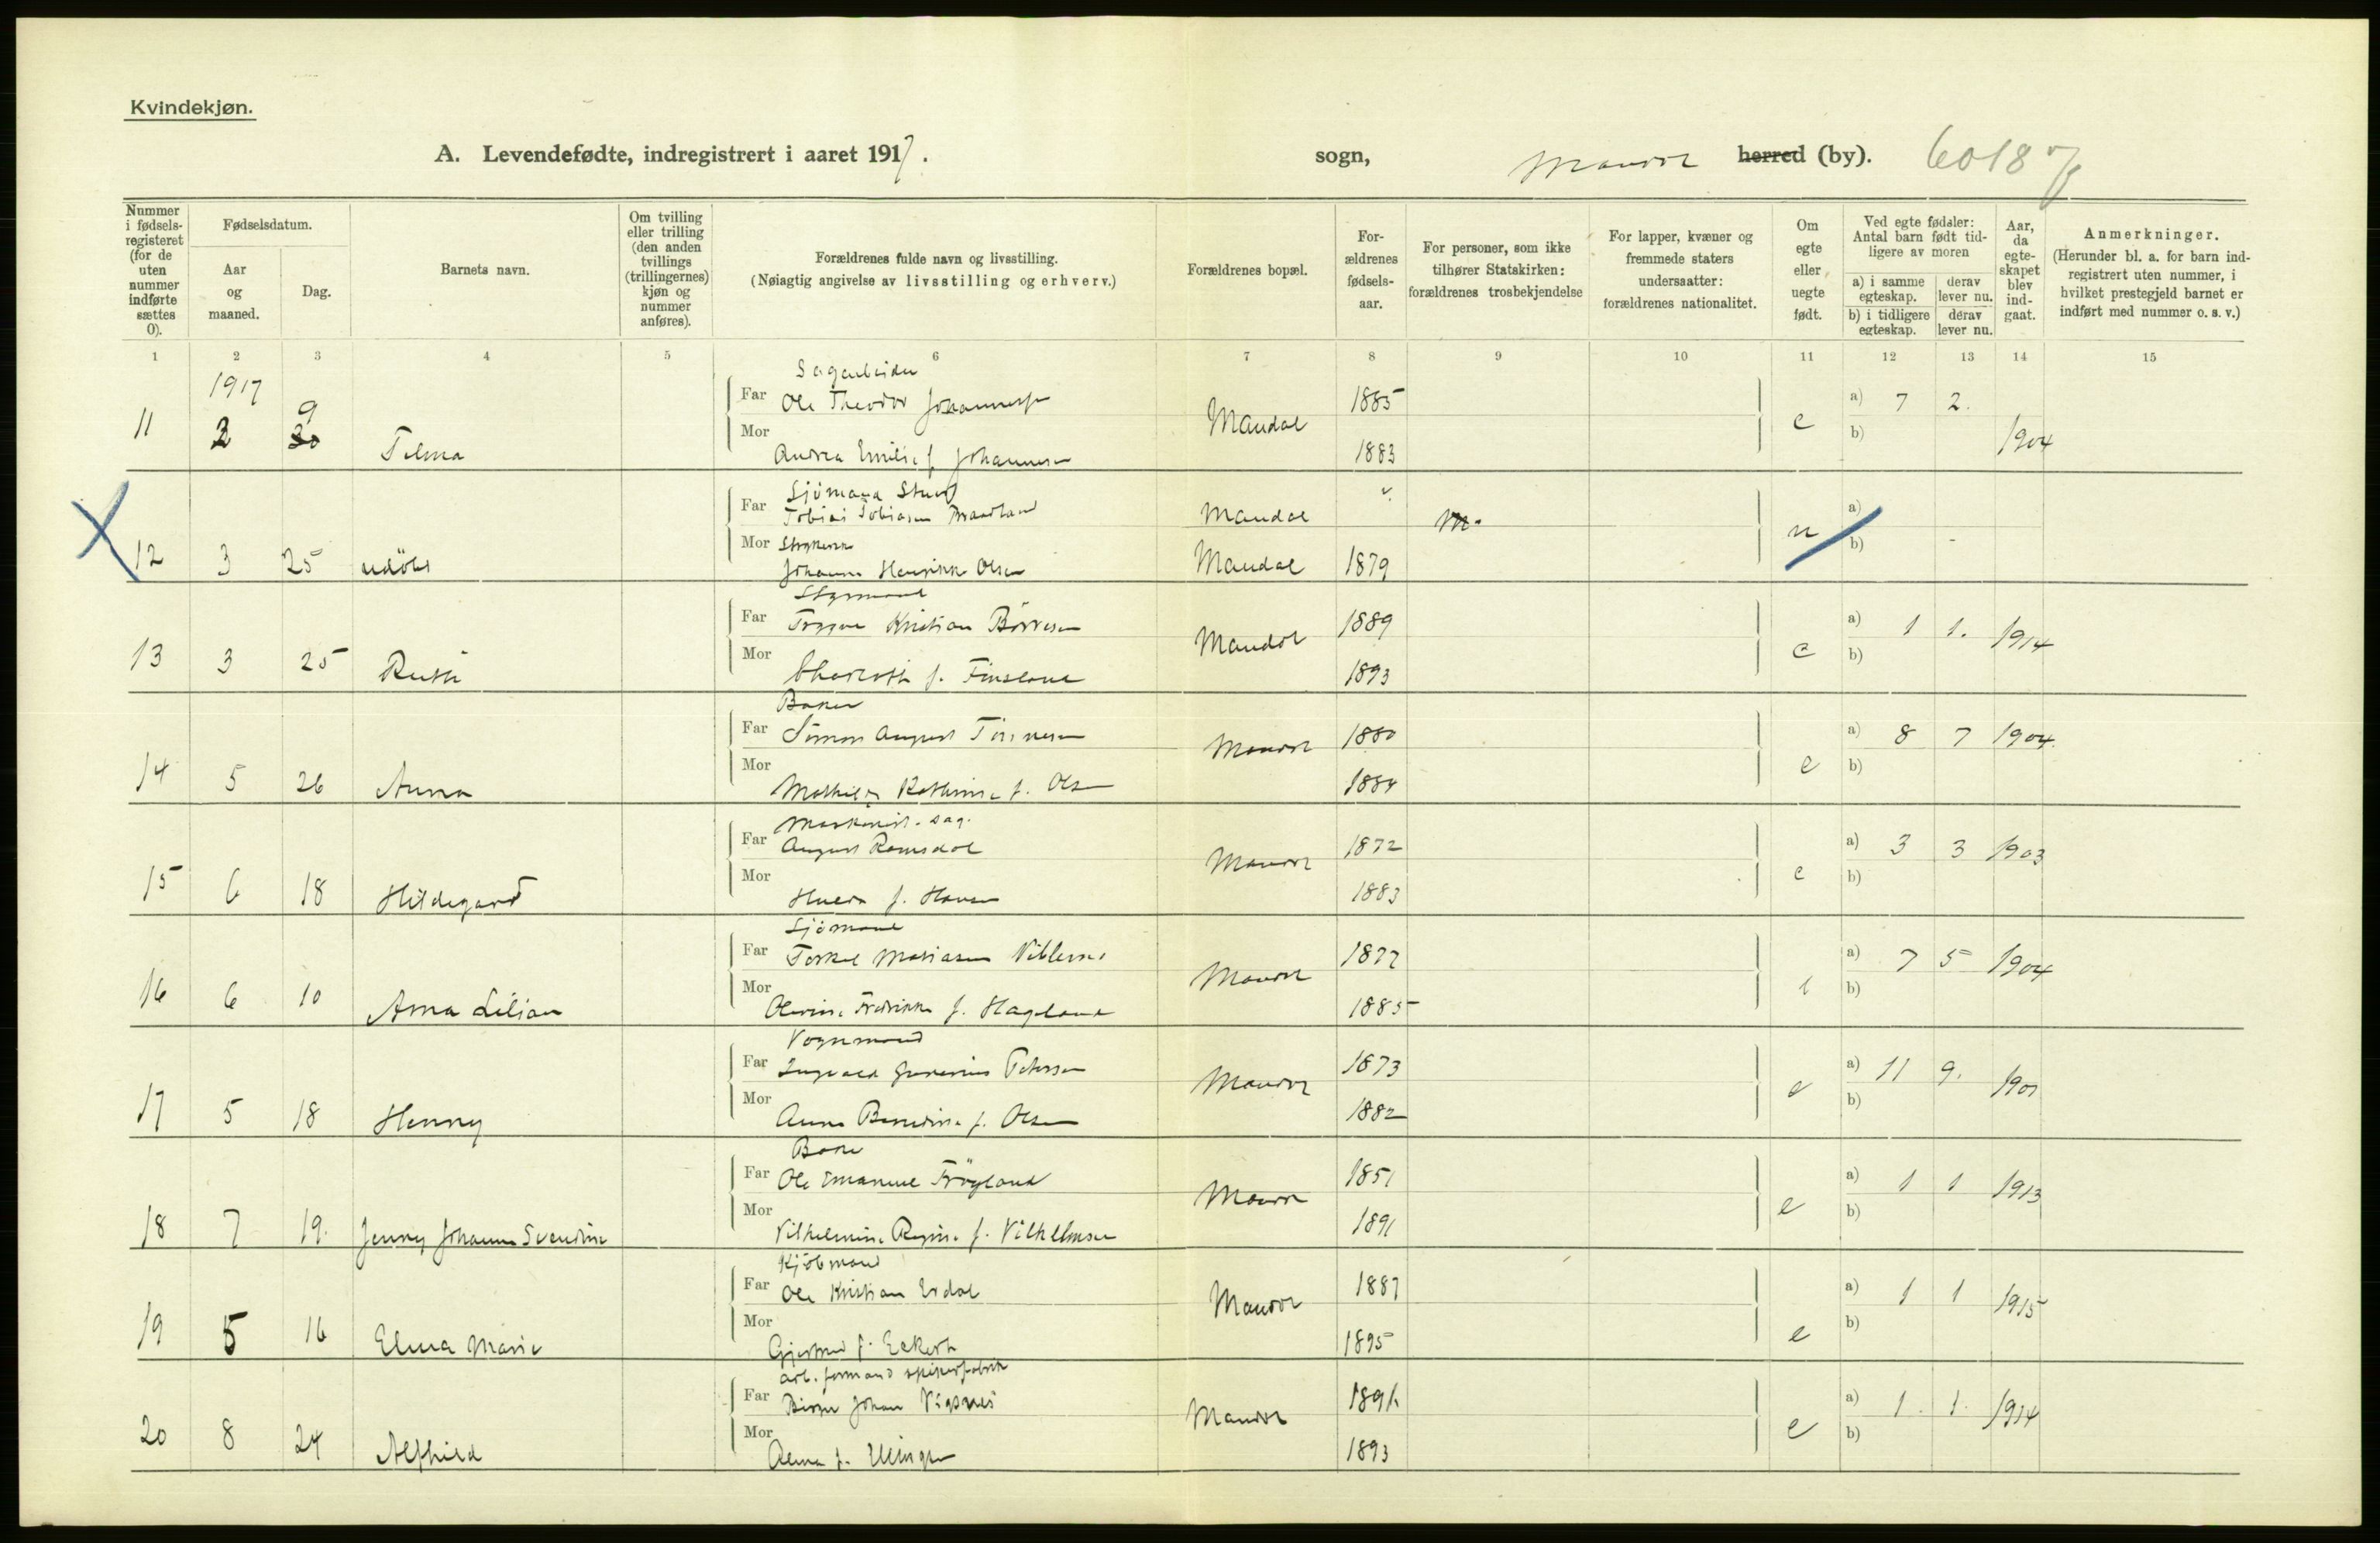 Kvindekjøn.
A. Levendefødte, indregistrert i aaret 1917.
sogn, Mandal herred (by). 6018
Nummer i fødselsregisteret (for de uten nummer indførte sættes 0).
Fødselsdatum.
Aar og maaned.
Dag.
Barnets navn.
Om tvilling eller trilling (den anden tvillings (trillingernes) kjøn og nummer anføres).
Forældrenes fulde navn og livsstilling.
(Nøiagtig angivelse av livsstilling og erhverv.)
Forældrenes bopæl.
Forældrenes fødselsaar.
For personer, som ikke tilhører Statskirken: forældrenes trosbekjendelse
For lapper, kvæner og fremmede staters undersaatter: forældrenes nationalitet.
Om egte eller uegte født.
Ved egte fødsler: Antal barn født tidligere av moren
a) i samme egteskap. derav lever nu.
b) i tidligere egteskap. derav lever nu.
Aar, da egteskapet blev indgaat.
Anmerkninger.
(Herunder bl. a. for barn indregistrert uten nummer, i hvilket prestegjeld barnet er indført med nummer o. s. v.)
1 2 3 4 5 6 7 8 9 10 11 12 13 14 15
1917
Sagarbeider
Far Ole Theodor Johannessen 1885 a) 7 2.
11 2 9 30 Telma Mandal e 1904
Mor Andrea Emilie f. Johannesen 1883 b)
Sjömand
Far Tobias Tobiasen Braadland Mandal a)
12 3 25 udöbt u
Mor Johanne Henrikke Olsen Mandal 1879 b) -
Styrmand
Far Trygve Kristian Börresen 1889 a) 1 1. 1914
13 3 25 Ruth Mandal e
Mor Charlotte f. Finsland 1893 b)
Baker
Far Simon August Tönnesen 1880 a) 8 7 1904
14 5 26 Anna Mandal e
Mor Mathilde Kathrine f. Olsen 1884 b)
Maskinist. sag.
Far August Ramsdal 1872 a) 3 3 1903
15 6 18 Hildegard Mandal e
Mor Hulda f. Hansen 1883 b)
Sjömand
Far Torkel Mathiasen 1877 a) 7 5 1904
16 6 10 Anna Lilian Mandal
Mor Olevine Fredrikke f. Hageland 1885 b)
Vognmand
Far Ingvald Petersen 1873 a) 11 9. 1901
17 5 18 Henny Mandal e
Mor Anne Bendine f. Olsen 1882 b)
Far Ole Emanuel Fröyland 1851 a) 1 1 1913
18 7 19. Jenny Johanne Svendine Mandal e
Mor Vilhelmine Regine f. Vilhelmsen 1891 b)
Kjöbmand
Far Ole Kristian Erdal 1887 a) 1 1 1915
19 5 16 Elna Marie Mandal e
Mor Gjertrud f. Eckert 1895 b)
arb. formand spikerfabrik
Far Birger Johan Vigsnes 1891 a) 1. 1. 1914
20 8 24 Alfhild Mandal e
Mor Alma f. Ellingsen 1893 b)